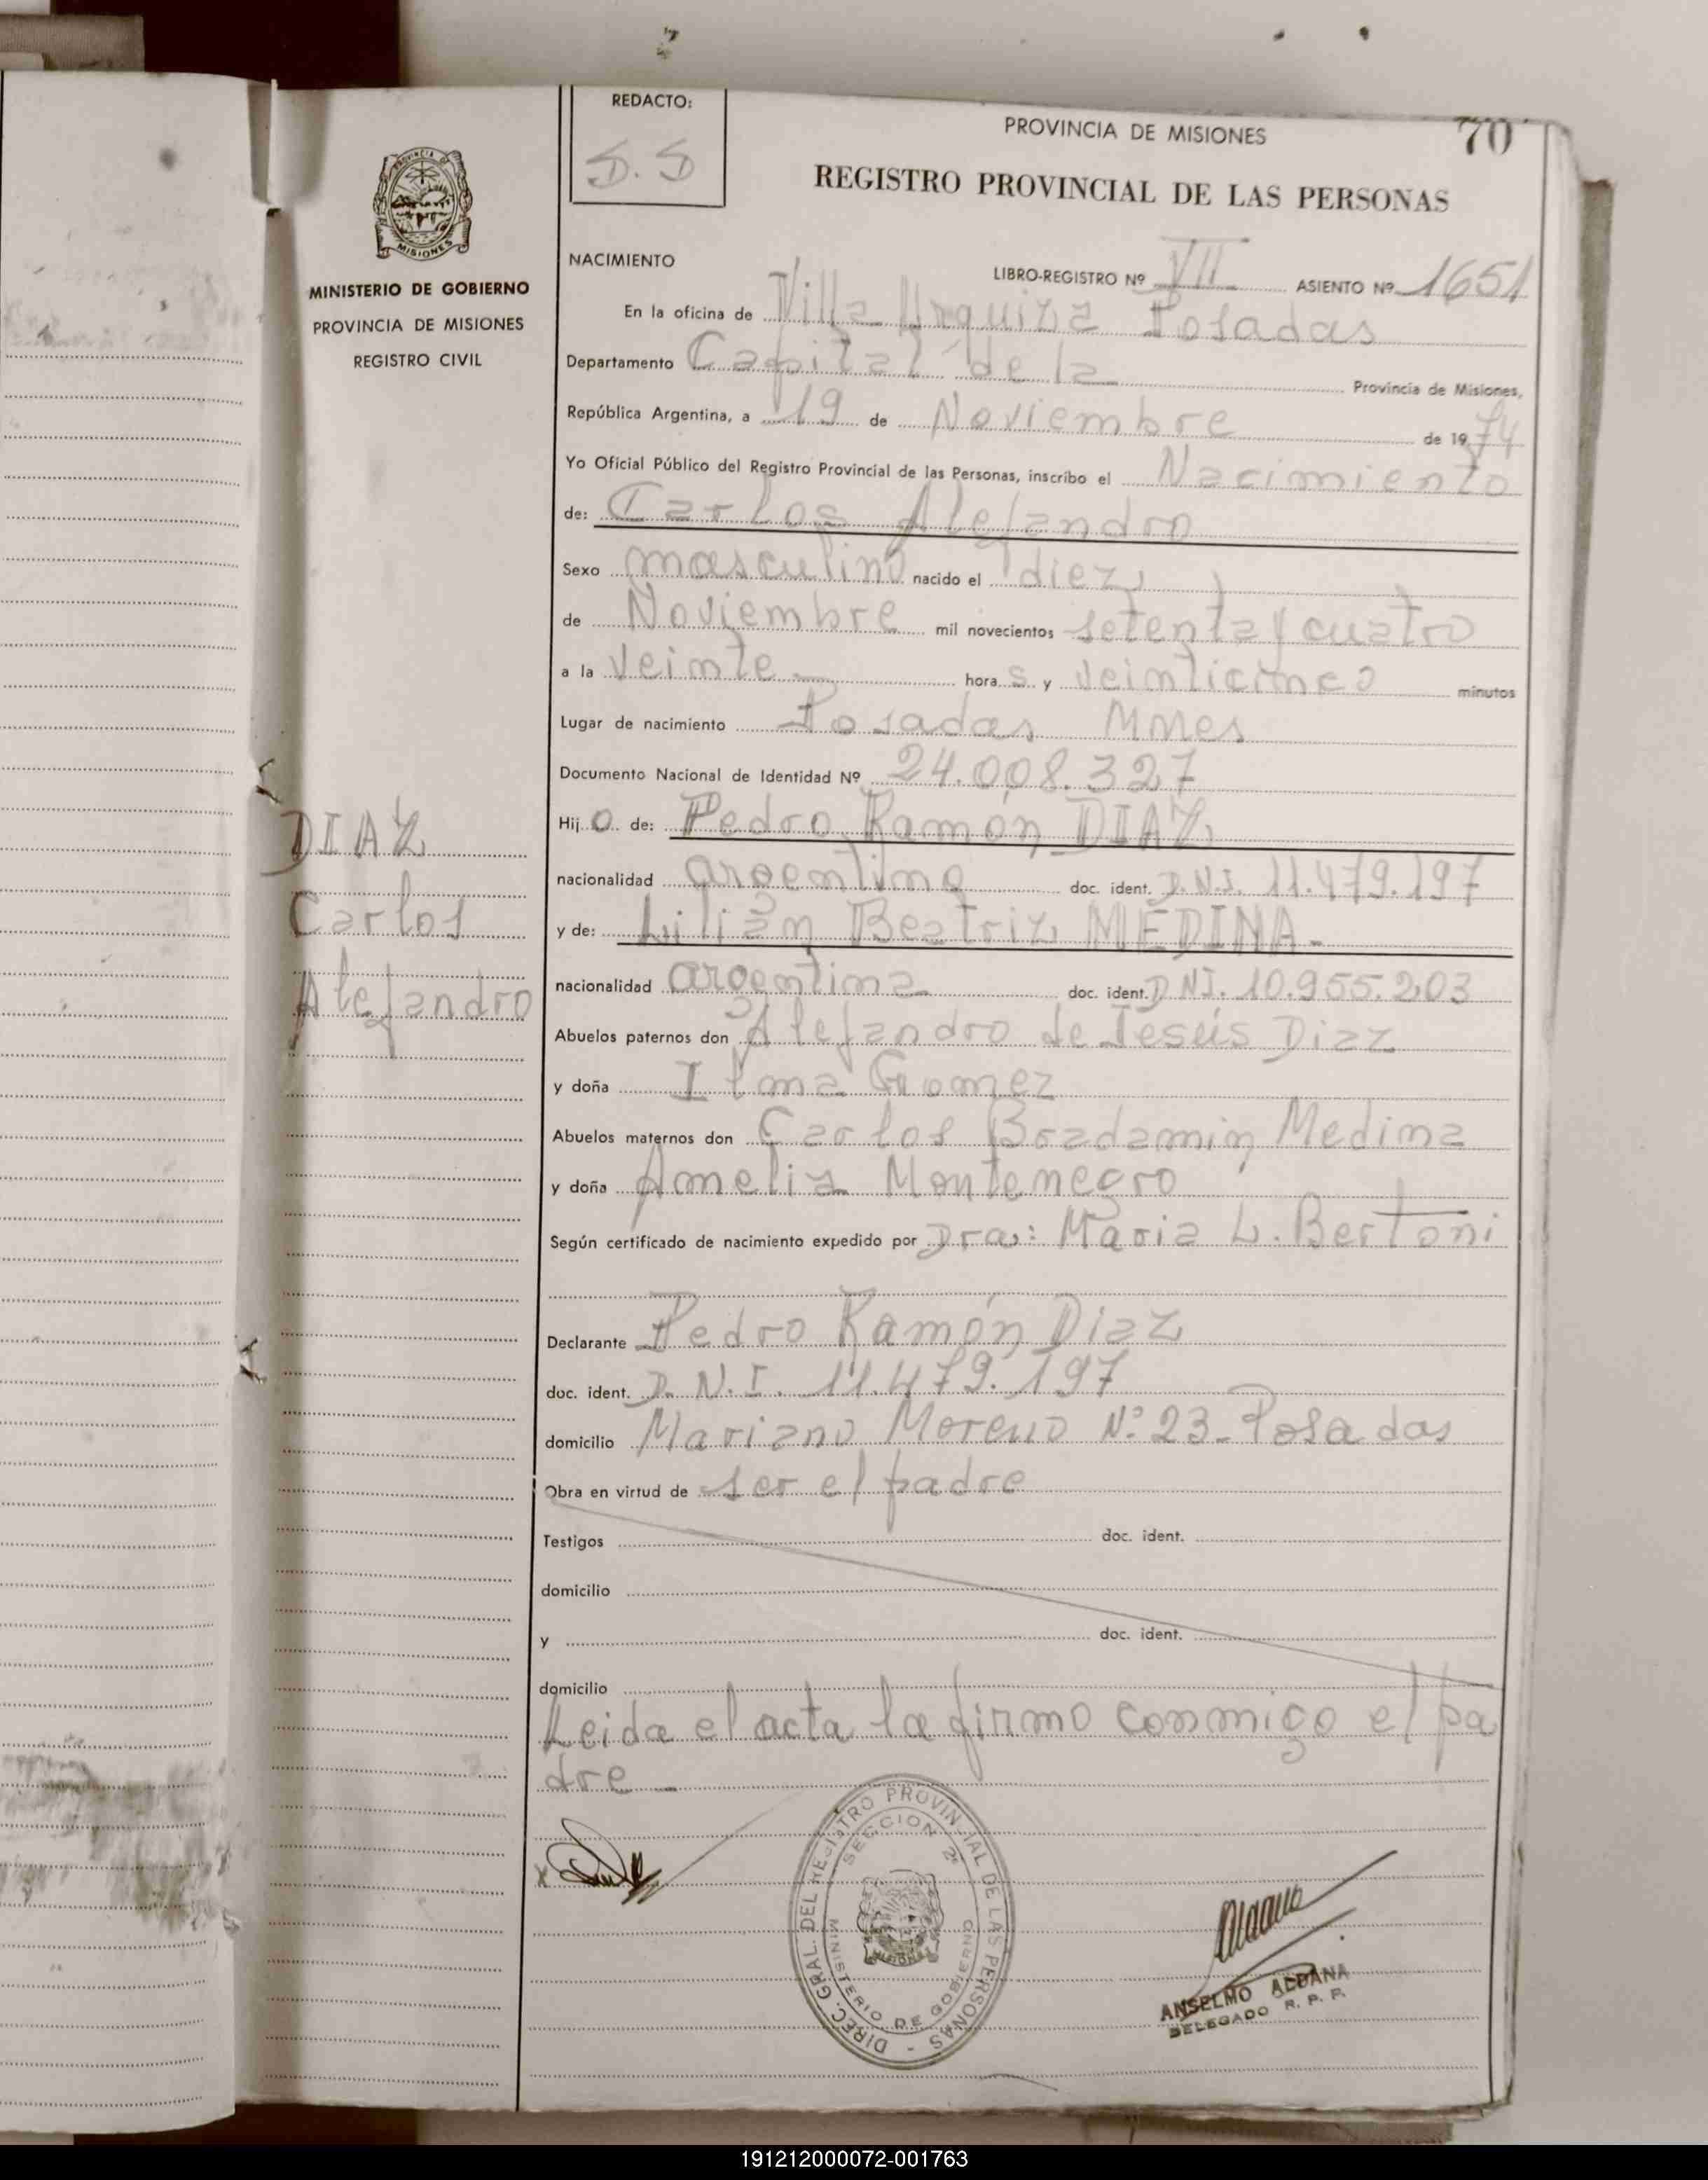 REDACTO:
S.S
PROVINCIA DE MISIONES
70
REGISTRO PROVINCIAL DE LAS PERSONAS
MISIONES
MINISTERIO DE GOBIERNO
PROVINCIA DE MISIONES
REGISTRO CIVIL
NACIMIENTO LIBRO-REGISTRO Nº VII ASIENTO Nº 1651
En la oficina de Villa Urquiza Posadas
Departamento Capital de la Provincia de Misiones,
República Argentina, a 19 de Noviembre de 1974
Yo Oficial Público del Registro Provincial de las Personas, inscribo el Nacimiento
de: Carlos Alejandro
Sexo masculino nacido el diez
de Noviembre mil novecientos setenta y cuatro
a la veinte hora s y veinticinco minutos
Lugar de nacimiento Posadas Mnes
Documento Nacional de Identidad Nº 24.008.327
Hij o de: Pedro Ramón DIAZ
nacionalidad argentino doc. ident. D.N.I. 11.479.197
y de: Lilián Beatriz MEDINA.-
nacionalidad argentina doc. ident. DNI. 10.955.203
Abuelos paternos don Alejandro de Jesús Diaz
y doña Gomez
Abuelos maternos don Carlos Medina
y doña Amelia Montenegro
Según certificado de nacimiento expedido por Dra: Maria L. Bertoni
Declarante Pedro Ramón Diaz
doc. ident. D.N.I. 11.479.197
domicilio Mariano Moreno Nº 23-Posadas
Obra en virtud de ser el padre
Testigos doc. ident.
domicilio
y doc. ident.
domicilio
Leida el acta la firmo conmigo el pa
dre -
DIAZ
Carlos
Alejandro
DIREC. GRAL. DEL REGISTRO PROVINCIAL DE LAS PERSONAS -
SECCION 2ª
MINISTERIO DE GOBIERNO
MISIONES
ANSELMO ALDANA
DELEGADO R. P. P.
191212000072-001763